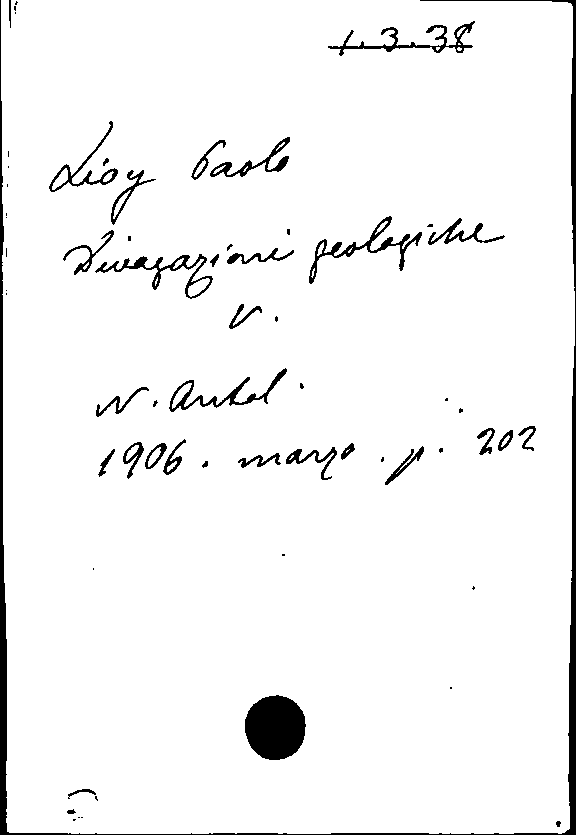 1.3.38
Lioy Paolo
Divagazioni geologiche
V.
N. Antol.
1906. marzo. p. 202